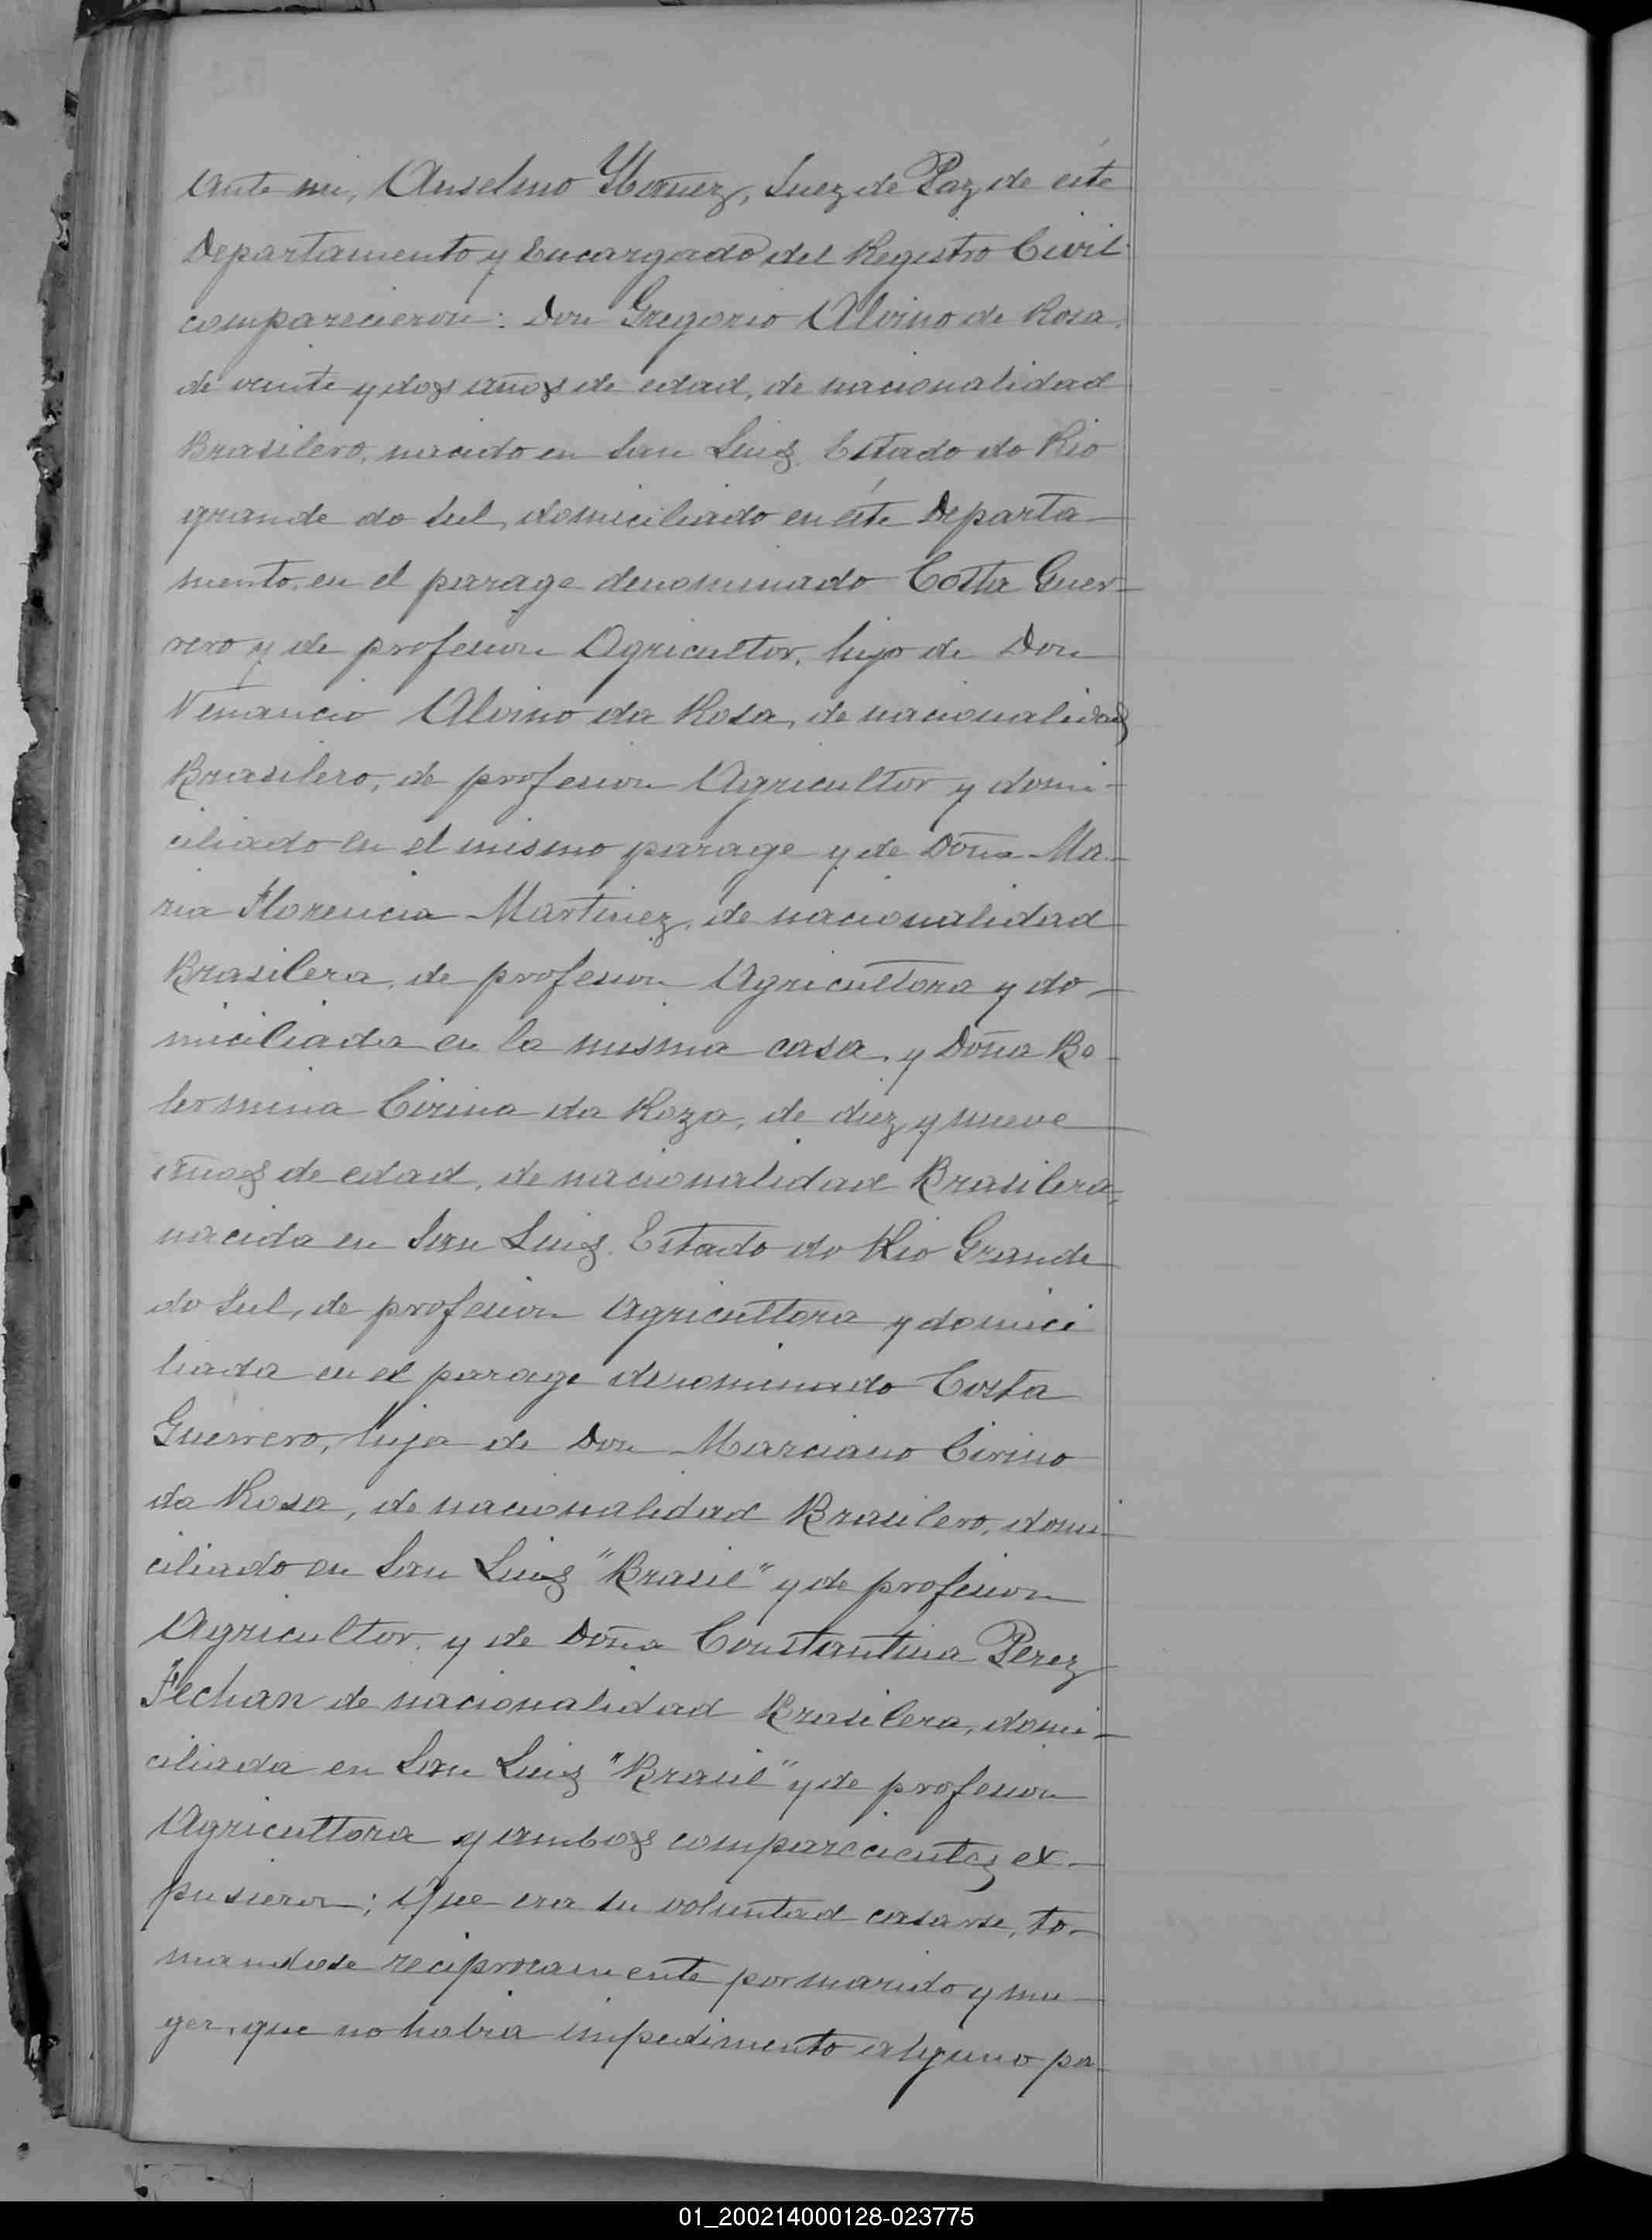 Ante mi, Anselmo Ybañez, Juez de Paz de éste
Departamento y Encargado del Registro Civil
comparecieron: Don Gregorio Alvino de Rosa,
de veinte y dos años de edad, de nacionalidad
Brasilero, nacido en San Luis, Estado do Rio
grande do Sul, domiciliado en éste Departa-
mento, en el parage denominado Costa Guer-
rero y de profesion Agricultor, hijo de Don
Venancio Alvino da Rosa, de nacionalidad
Brasilero, de profesion Agricultor y domi-
ciliado en el mismo parage y de Doña Ma-
ria Florencia Martinez, de nacionalidad
Brasilera, de profesion Agricultora y do-
miciliada en la misma casa, y Doña Be-
lermina Cirina da Roza, de diez y nueve
años de edad, de nacionalidad Brasilera,
nacida en San Luis, Estado do Rio Grande
do Sul, de profesion Agricultora y domici
liada en el parage denominado Costa
Guerrero, hija de Don Marciano Cirino
da Rosa, de nacionalidad Brasilero, domi-
ciliado en San Luis "Brasil" y de profesion
Agricultor, y de Doña Constantina Perez
Fechan de nacionalidad Brasilera, domi-
ciliada en San Luis "Brasil" y de profesion
Agricultora y ambos comparecientes ex-
pusieron; Que era su voluntad casarse, to-
mandose reciprocamente por marido y mu-
ger, que no habia impedimento alguno pa-
01_200214000128-023775